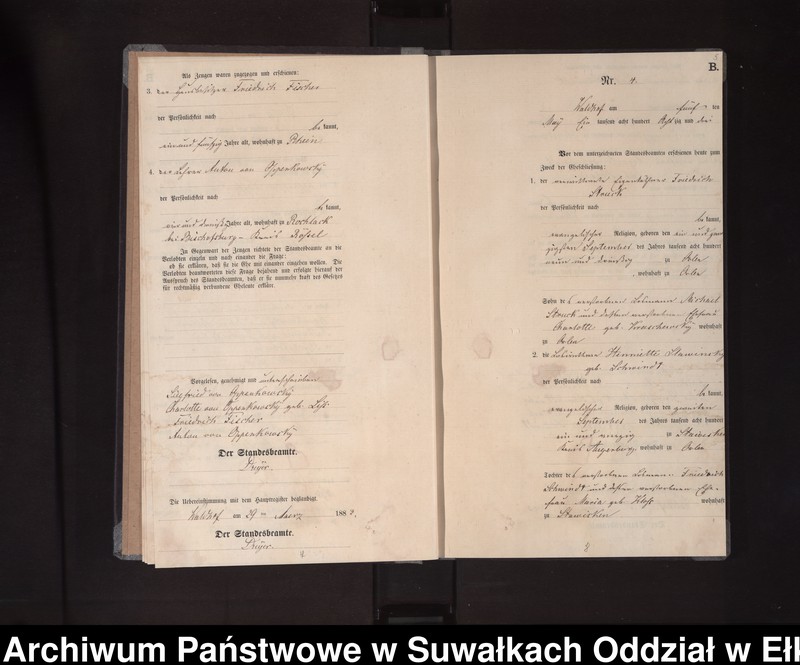 Als Zeugen waren zugezogen und erschienen:
3. der Friedrich Fischer
der Persönlichkeit nach
be kannt,
ein und fünfzig Jahre alt, wohnhaft zu Rhein
4. der Lehrer Anton von Oppenkowsky
der Persönlichkeit nach
be kannt,
ein und dreißig Jahre alt, wohnhaft zu Rochlack
bei Bischofsburg Kreis Rössel
In Gegenwart der Zeugen richtete der Standesbeamte an die
Verlobten einzeln und nach einander die Frage:
ob sie erklären, daß sie die Ehe mit einander eingehen wollen. Die
Verlobten beantworteten diese Frage bejahend und erfolgte hierauf der
Ausspruch des Standesbeamten, daß er sie nunmehr kraft des Gesetzes
für rechtmäßig verbundene Eheleute erkläre.
Vorgelesen, genehmigt und unterschrieben
Siegfried von Oppenkowsky
Charlotte von Oppenkowsky geb.
Friedrich Fischer
Anton von Oppenkowsky
Der Standesbeamte.
Die Uebereinstimmung mit dem Hauptregister beglaubigt.
Waldhof am 29 ten Maerz 1883.
Der Standesbeamte.
B.
Nr. 4.
Waldhof am fünf ten
May Ein tausend acht hundert Acht zig und drei
Vor dem unterzeichneten Standesbeamten erschienen heute zum
Zweck der Eheschließung:
1. der verwittwete Eigenkäthner Friedrich
Struck
der Persönlichkeit nach
be kannt,
evangelischer Religion, geboren den ein und zwan
zigsten September des Jahres tausend acht hundert
neun und dreißig zu Orlen
, wohnhaft zu Orlen
Sohn des verstorbenen Losmann Michael
Struck und dessen verstorbenen Ehefrau
Charlotte geb. wohnhaft
zu Orlen
2. die Henriette
geb. Schwendt
der Persönlichkeit nach
be kannt,
evangelischer Religion, geboren den zweiten
September des Jahres tausend acht hundert
ein und vierzig zu
Kreis Angerburg, wohnhaft zu Orlen
Tochter des verstorbenen Losmann Friedrich
Schwendt und dessen verstorbenen Ehe-
frau Maria geb. wohnhaft
zu
Archiwum Państwowe w Suwałkach Oddział w Ełk